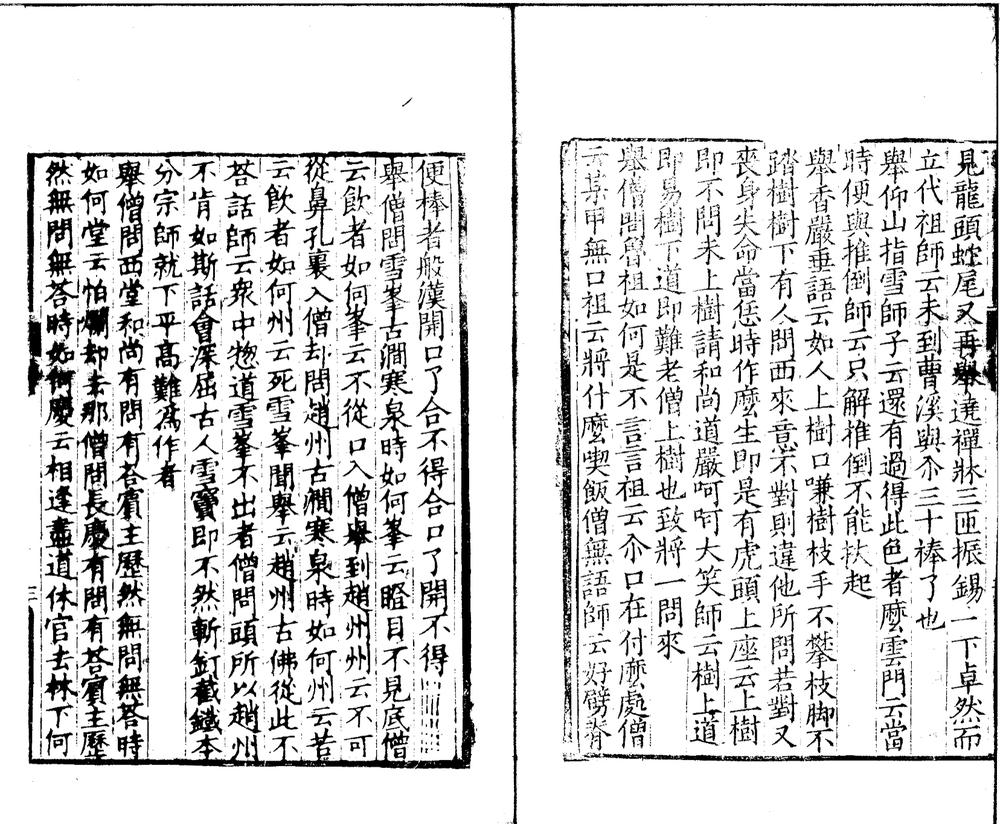 見龍頭蛇尾又再舉遶禪牀三匝振錫一下卓然而
立代祖師云未到曹溪與尒三十棒了也
舉仰山指雪師子云還有過得此色者麼雲門云當
時便與推倒師云只解推倒不能扶起
舉香嚴垂語云如人上樹口嗛樹枝手不攀枝脚不
踏樹樹下有人問西來意不對則違他所問若對又
喪身失命當恁時作麼生即是有虎頭上座云上樹
即不問未上樹請和尚道嚴呵呵大笑師云樹上道
即易樹下道即難老僧上樹也致將一問來
舉僧問魯祖如何是不言言祖云尒口在什麼處僧
云某甲無口祖云將什麼喫飯僧無語師云好劈脊
便棒者般漢開口了合不得合口了開不得
舉僧問雪峯古澗寒泉時如何峯云瞪目不見底僧
云飲者如何峯云不從口入僧舉到趙州州云不可
從鼻孔裏入僧却問趙州古澗寒泉時如何州云苦
云飲者如何州云死雪峯聞舉云趙州古佛從此不
荅話師云衆中惣道雪峯不出者僧問頭所以趙州
不肯如斯話會深屈古人雪竇即不然斬釘截鐵本
分宗師就下平高難爲作者
舉僧問西堂和尚有問有荅賓主歷然無問無荅時
如何堂云怕爛却去那僧問長慶有問有荅賓主歷
然無問無荅時如何慶云相逢盡道休官去林下何
三